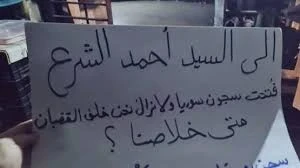 الى السيد أحمد الشرع
فُتحت سجون سوريا ولانزال نحن خلف القضبان
متى خلاصنا ؟
سجن